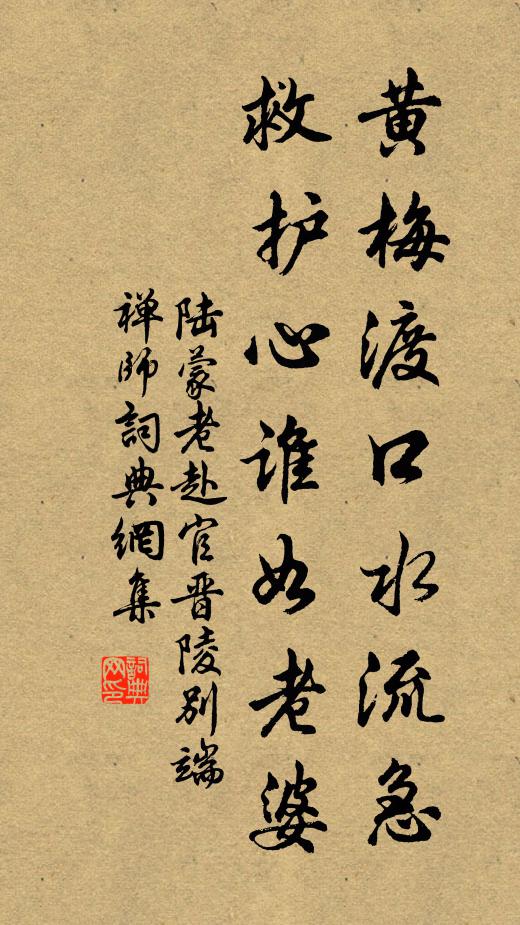 黄梅渡口水流急
救护心谁如老婆
陆蒙老赴官晋陵别端
禅师詞典網集
詞典
网印